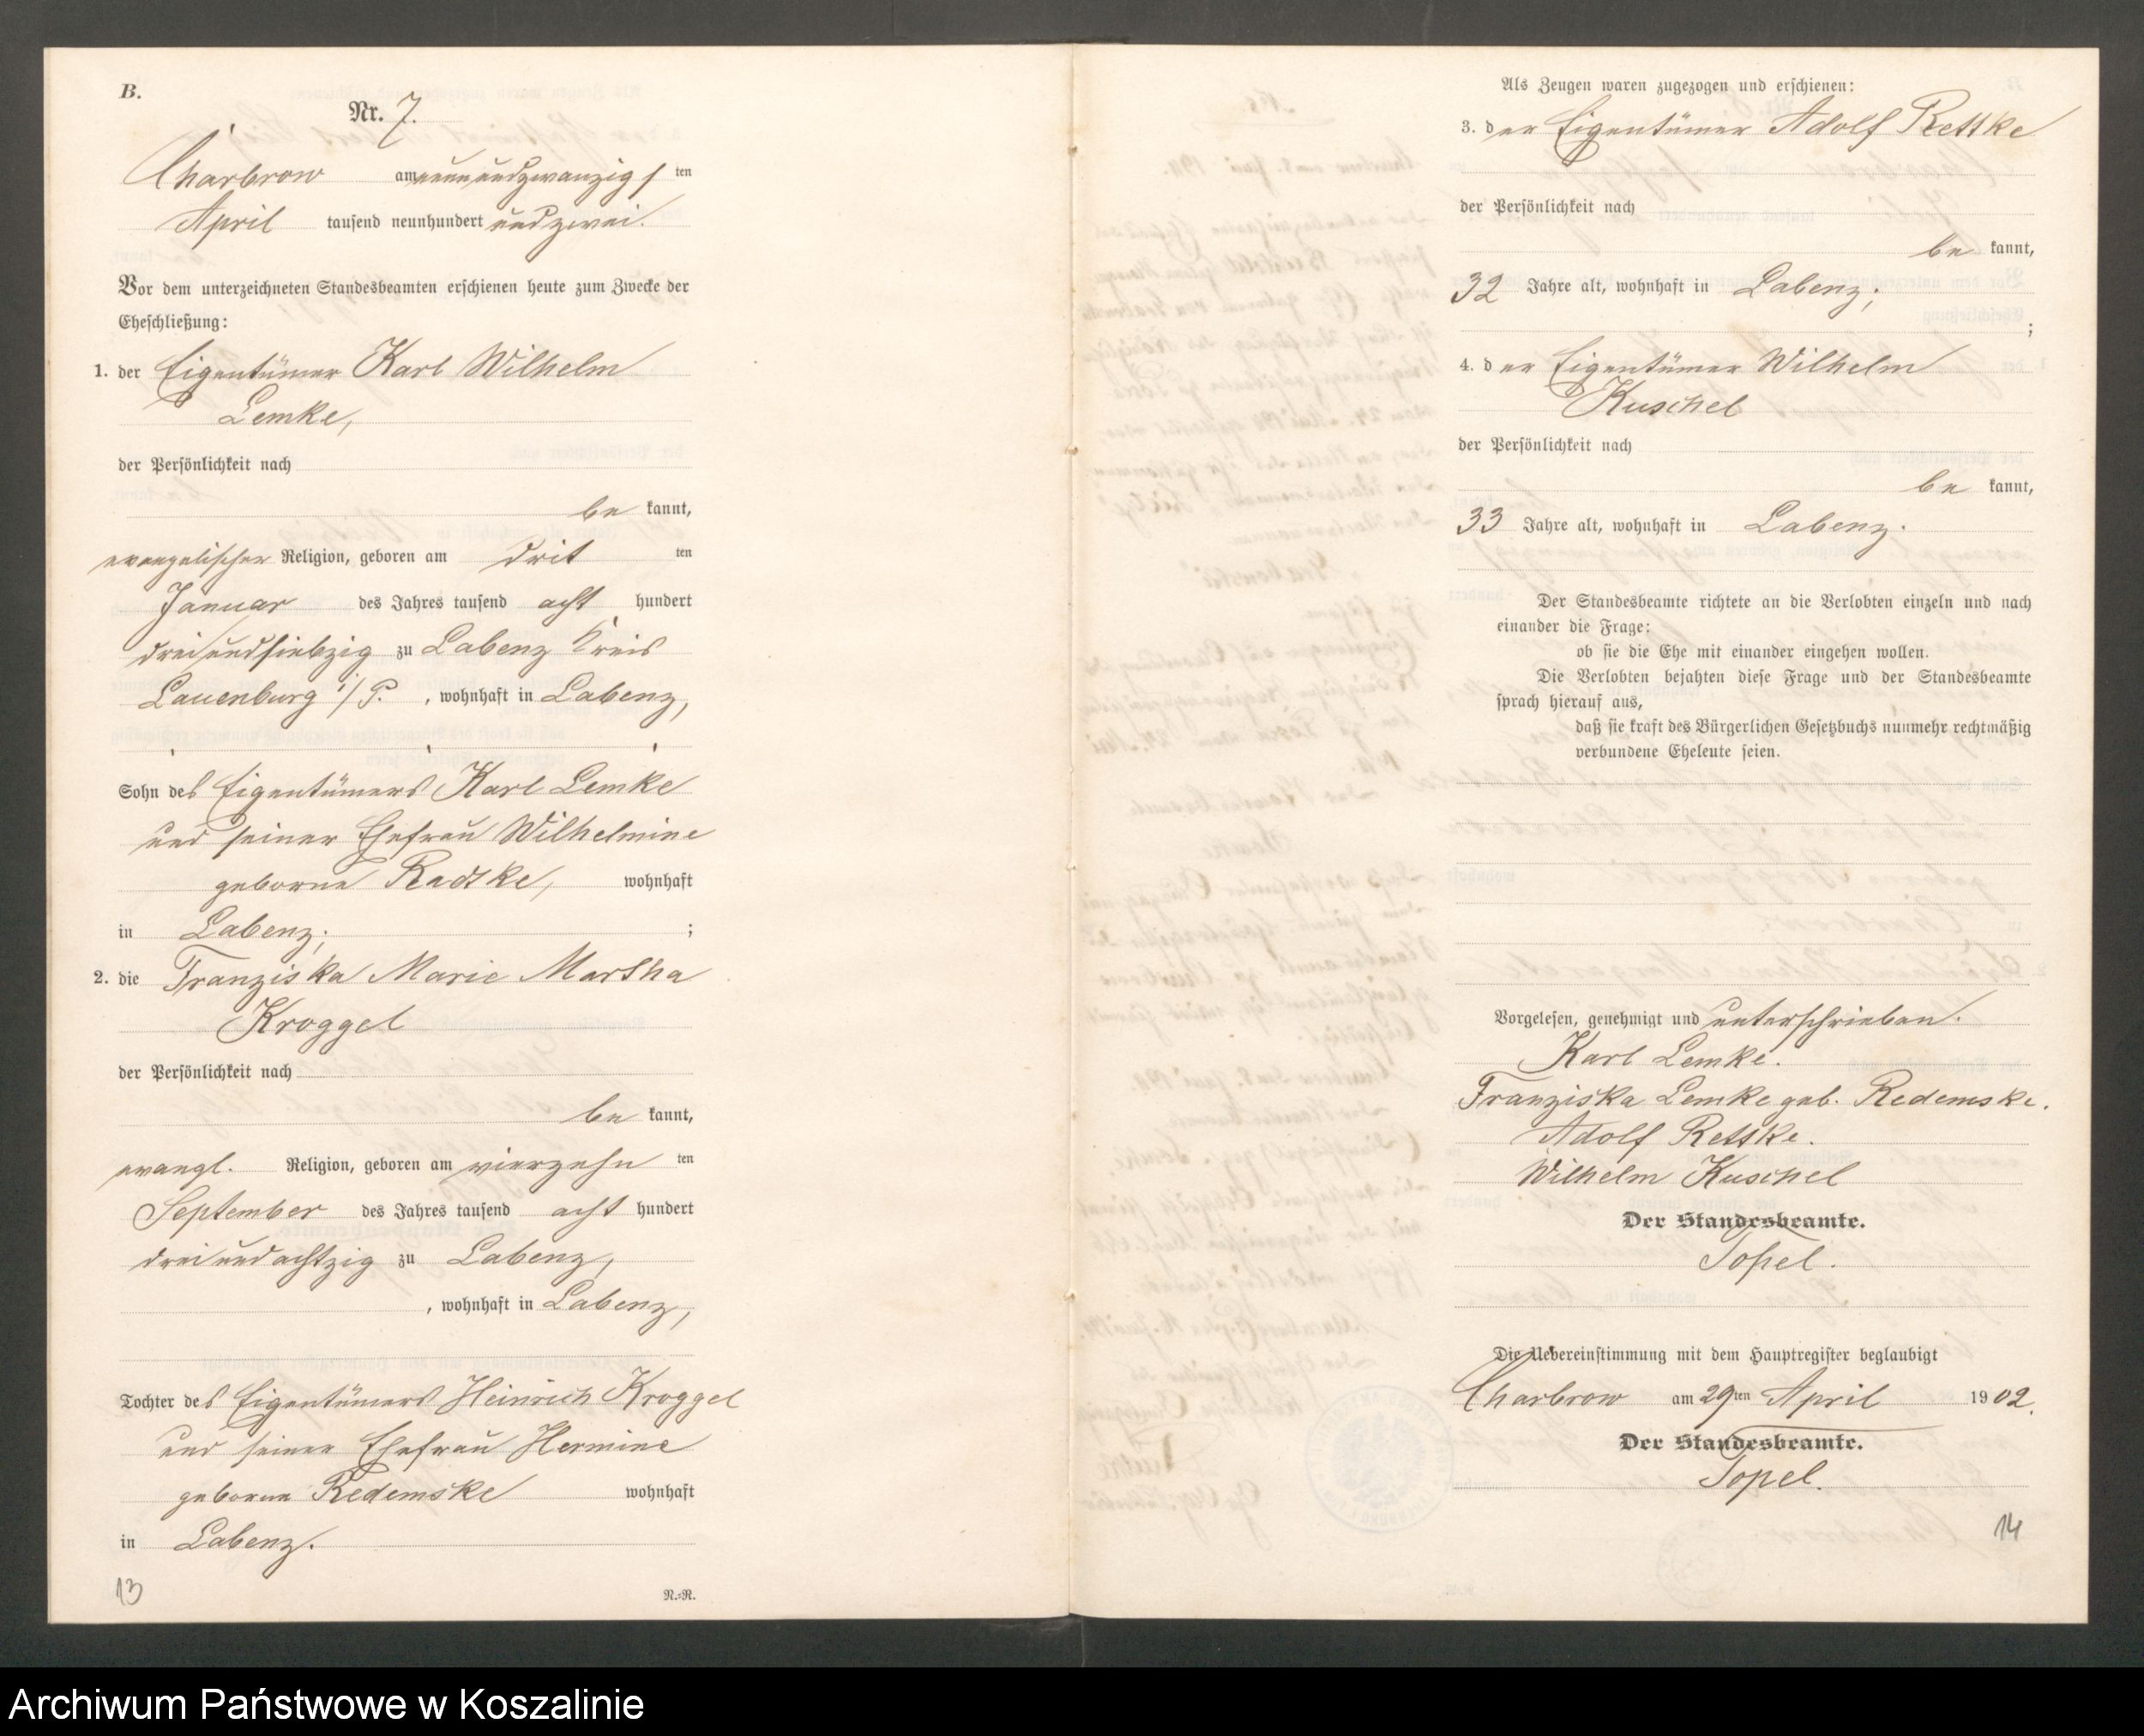 B.
Nr. 7.
Charbrow am neunundzwanzigsten
April tausend neunhundert und zwei.
Vor dem unterzeichneten Standesbeamten erschienen heute zum Zwecke der
Eheschließung:
1. der Eigentümer Karl Wilhelm
Lemke,
der Persönlichkeit nach
be kannt,
evangelischer Religion, geboren am drit ten
Januar des Jahres tausend acht hundert
dreiundsiebzig zu Labenz Kreis
Lauenburg i/P. , wohnhaft in Labenz,
Sohn des Eigentümers Karl Lemke
und seiner Ehefrau Wilhelmine
geborne Radtke, wohnhaft
in Labenz; ;
2. die Franziska Marie Martha
Kroggel
der Persönlichkeit nach
be kannt,
evangl. Religion, geboren am vierzehn ten
September des Jahres tausend acht hundert
dreiundachtzig zu Labenz,
, wohnhaft in Labenz,
Tochter des Eigentümers Heinrich Kroggel
und seiner Ehefrau Hermine
geborne Redemske wohnhaft
in Labenz.
13
N.=R.
Als Zeugen waren zugezogen und erschienen:
3. der Eigentümer Adolf Rettke
der Persönlichkeit nach
be kannt,
32 Jahre alt, wohnhaft in Labenz;
;
4. der Eigentümer Wilhelm
Kuschel
der Persönlichkeit nach
be kannt,
33 Jahre alt, wohnhaft in Labenz.
Der Standesbeamte richtete an die Verlobten einzeln und nach
einander die Frage:
ob sie die Ehe mit einander eingehen wollen.
Die Verlobten bejahten diese Frage und der Standesbeamte
sprach hierauf aus,
daß sie kraft des Bürgerlichen Gesetzbuchs nunmehr rechtmäßig
verbundene Eheleute seien.
Vorgelesen, genehmigt und unterschrieben.
Karl Lemke.
Franziska Lemke geb. Redemske.
Adolf Rettke.
Wilhelm Kuschel
Der Standesbeamte.
Topel.
Die Uebereinstimmung mit dem Hauptregister beglaubigt
Charbrow am 29ten April 1902.
Der Standesbeamte.
Topel.
14
Archiwum Państwowe w Koszalinie